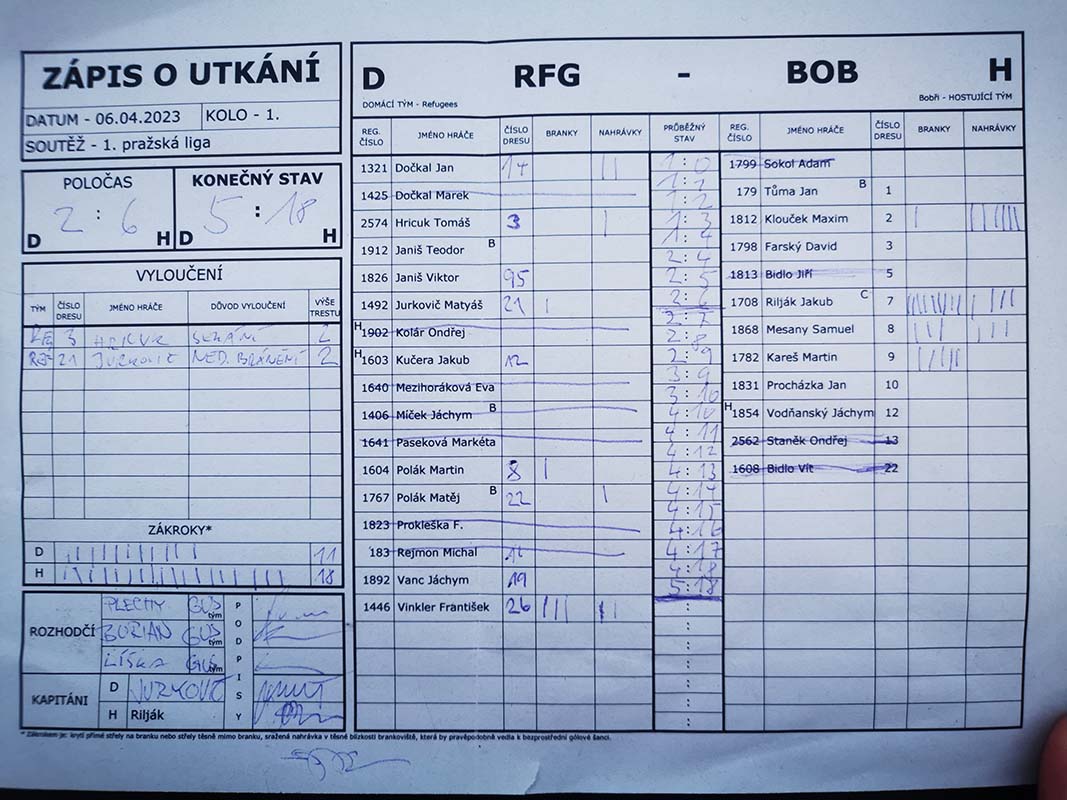 ZÁPIS O UTKÁNÍ
DATUM - 06.04.2023 KOLO - 1.
SOUTĚŽ - 1. pražská liga
POLOČAS KONEČNÝ STAV
2 : 6 5 : 18
D H D H
VYLOUČENÍ
TÝM ČÍSLO DRESU JMÉNO HRÁČE DŮVOD VYLOUČENÍ VÝŠE TRESTU
3 HRICUK SEKÁNÍ 2
21 JURKOVIČ NED. BRÁNĚNÍ 2
ZÁKROKY*
D 11
H 18
ROZHODČÍ
PLECHY GUD tým
BURIAN GUD tým
LÍŠKA tým
PODPISY
KAPITÁNI
D JURKOVIČ
H Rilják
D RFG - BOB H
DOMÁCÍ TÝM - Refugees Bobři - HOSTUJÍCÍ TÝM
REG. ČÍSLO JMÉNO HRÁČE ČÍSLO DRESU BRANKY NAHRÁVKY PRŮBĚŽNÝ STAV REG. ČÍSLO JMÉNO HRÁČE ČÍSLO DRESU BRANKY NAHRÁVKY
1321 Dočkal Jan 14
1425 Dočkal Marek
2574 Hricuk Tomáš 3
1912 Janiš Teodor B
1826 Janiš Viktor 95
1492 Jurkovič Matyáš 21
H 1902 Kolár Ondřej
H 1603 Kučera Jakub 12
1640 Mezihoráková Eva
1406 Míček Jáchym B
1641 Paseková Markéta
1604 Polák Martin 8
1767 Polák Matěj B 22
1823 Prokleška F.
183 Rejmon Michal
1892 Vanc Jáchym 19
1446 Vinkler František 26
1:0
1:1
1:2
1:3
1:4
2:4
2:5
2:6
2:7
2:8
2:9
3:9
3:10
4:10
4:11
4:12
4:13
4:14
4:15
4:16
4:17
4:18
5:18
1799 Sokol Adam
179 Tůma Jan B 1
1812 Klouček Maxim 2
1798 Farský David 3
1813 Bidlo Jiří 5
1708 Rilják Jakub C 7
1868 Mesany Samuel 8
1782 Kareš Martin 9
1831 Procházka Jan 10
H 1854 Vodňanský Jáchym 12
2562 Staněk Ondřej 13
1608 Bidlo Vít 22
* Zákrokem je: krytí přímé střely na branku nebo střely těsně mimo branku, sražená nahrávka v těsné blízkosti brankoviště, která by pravěpodobně vedla k bezprostřední gólové šanci.